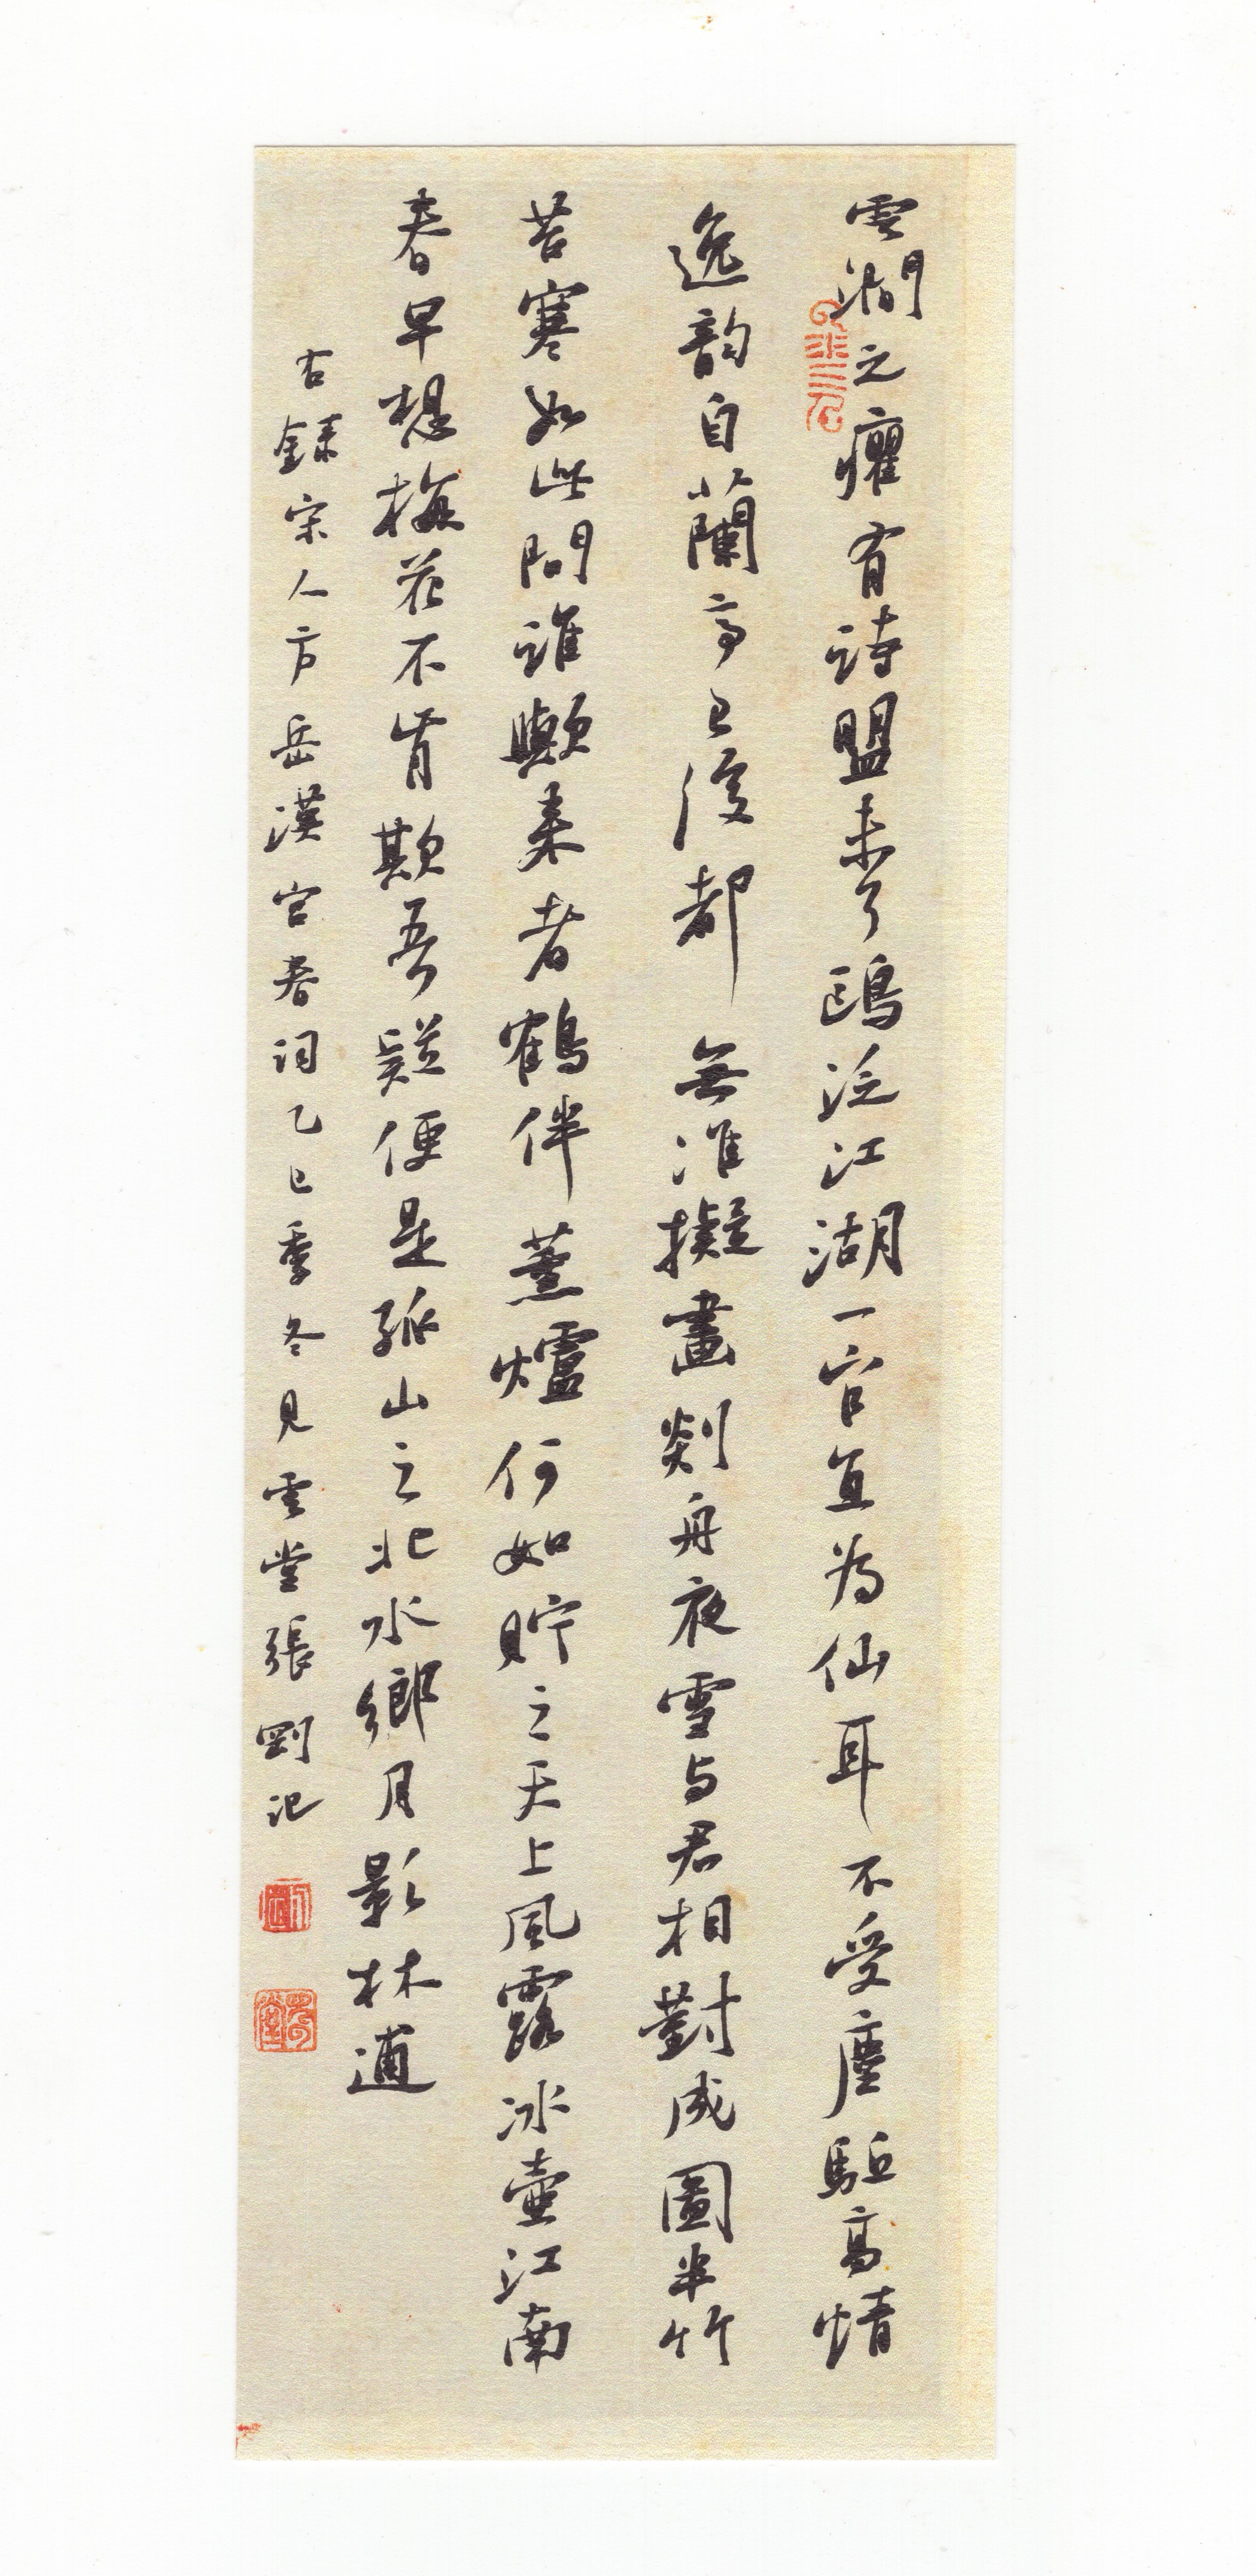 雲澗之癯有詩盟未了鷗泛江湖一官直為仙耳不受塵駈高情
逸韵自蘭亭已後都無准擬畫剡舟夜雪与君相對成圖半竹
苦寒如此問誰歟来者鶴伴薰爐何如貯之天上風露冰壺江南
春早想梅花不肯欺吾疑便是孤山之北水鄉月影林逋
右錄宋人方岳漢宮春詞乙巳季冬見雲堂張剛記